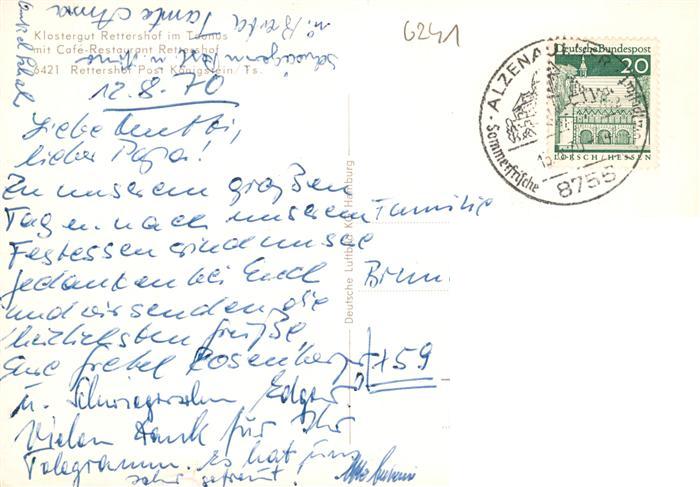 6241
Tante Anna
Klostergut Rettershof im Taunus
mit Café-Restaurant Rettershof
6421 Rettershof Post Königstein/Ts.
12.8.70
Liebe Mutti,
lieber Papa!
Zu unserem großen
Tage u. nach unserem Familie
Festessen sind unsre
Gedanken bei Euch
und wir senden die
herzlichsten Grüße
Eure Gretel Rosenberger
+59
u. Schwiegersohn Edgar
Vielen Dank für Ihr
Telegramm. Es hat uns
sehr gefreut.
Deutsche Luftbild KG Hamburg
ALZENAU
Sommerfrische
8755
Deutsche Bundespost
20
LORSCH/HESSEN